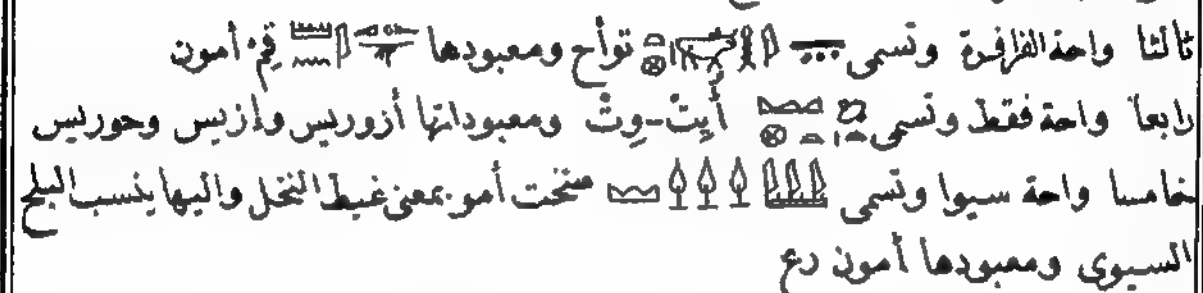 ثالثا واحة الفرافرة وتسمى توأح ومعبودها قِم أمون
رابعا واحة فقط وتسمى أُيِتْ-وِتْ ومعبوداتها أزوريس وإزيس وحوريس
خامسا واحة سيوا وتسمى سخت أمو بمعنى غيط النخل واليها ينسب البلح
السيوى ومعبودها أمون رع